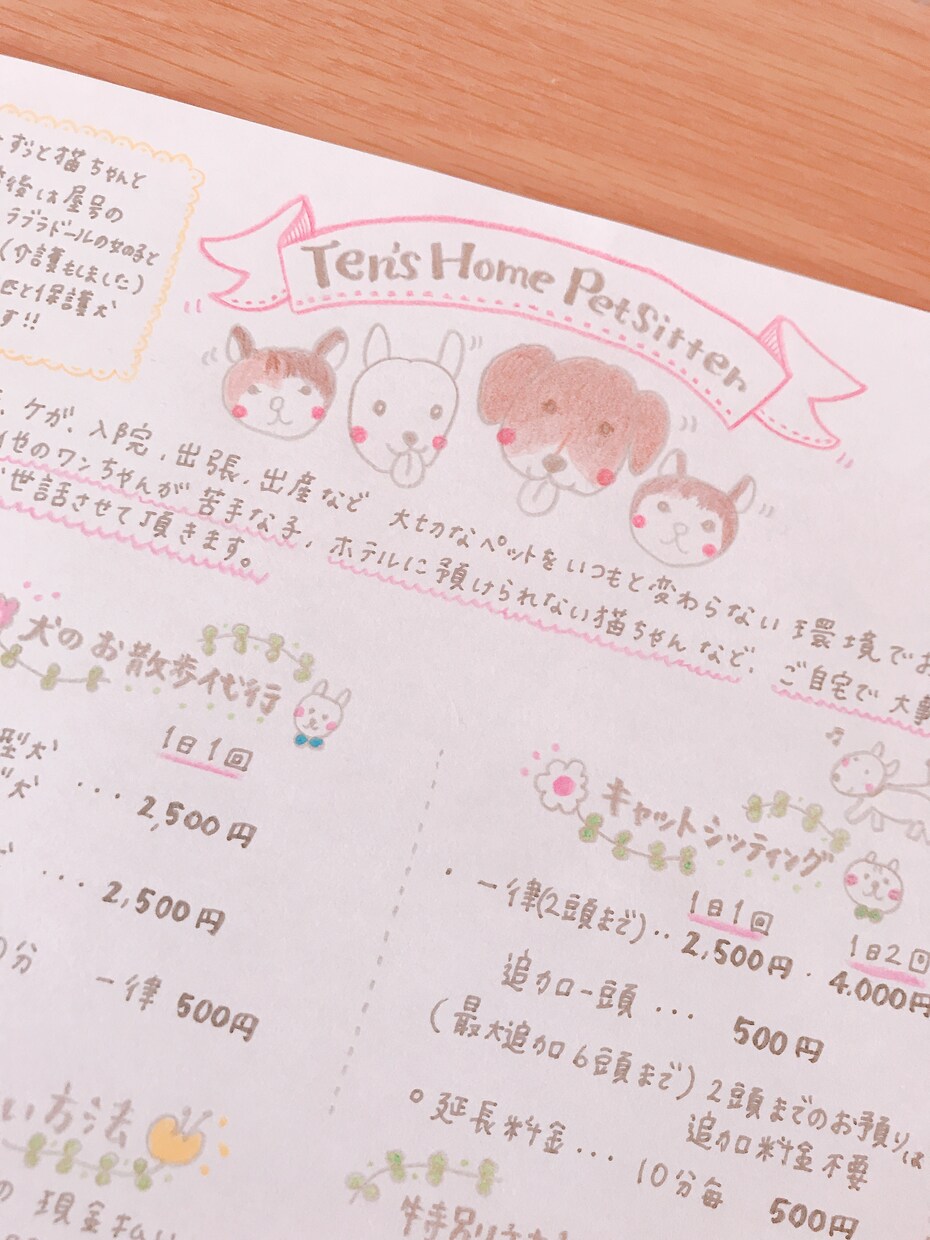 ずっと猫ちゃんと
後は屋号の
ラブラドールの女の子と
(介護もしました)
匹と保護犬
す!!
Ten's Home PetSitter
ケガ、入院、出張、出産など 大切なペットをいつもと変わらない環境でお
他のワンちゃんが苦手な子、ホテルに預けられない猫ちゃんなど、ご自宅で大事
世話させて頂きます。
犬のお散歩代行
1日1回
型犬
犬 ... 2,500円
... 2,500円
0分 一律 500円
い方法
現金払い
キャットシッティング
1日1回 1日2回
・一律(2頭まで)‥2,500円・4.000円
追加一頭 ... 500円
(最大追加6頭まで)2頭までのお預りは
追加料金不要
○延長料金... 10分毎 500円